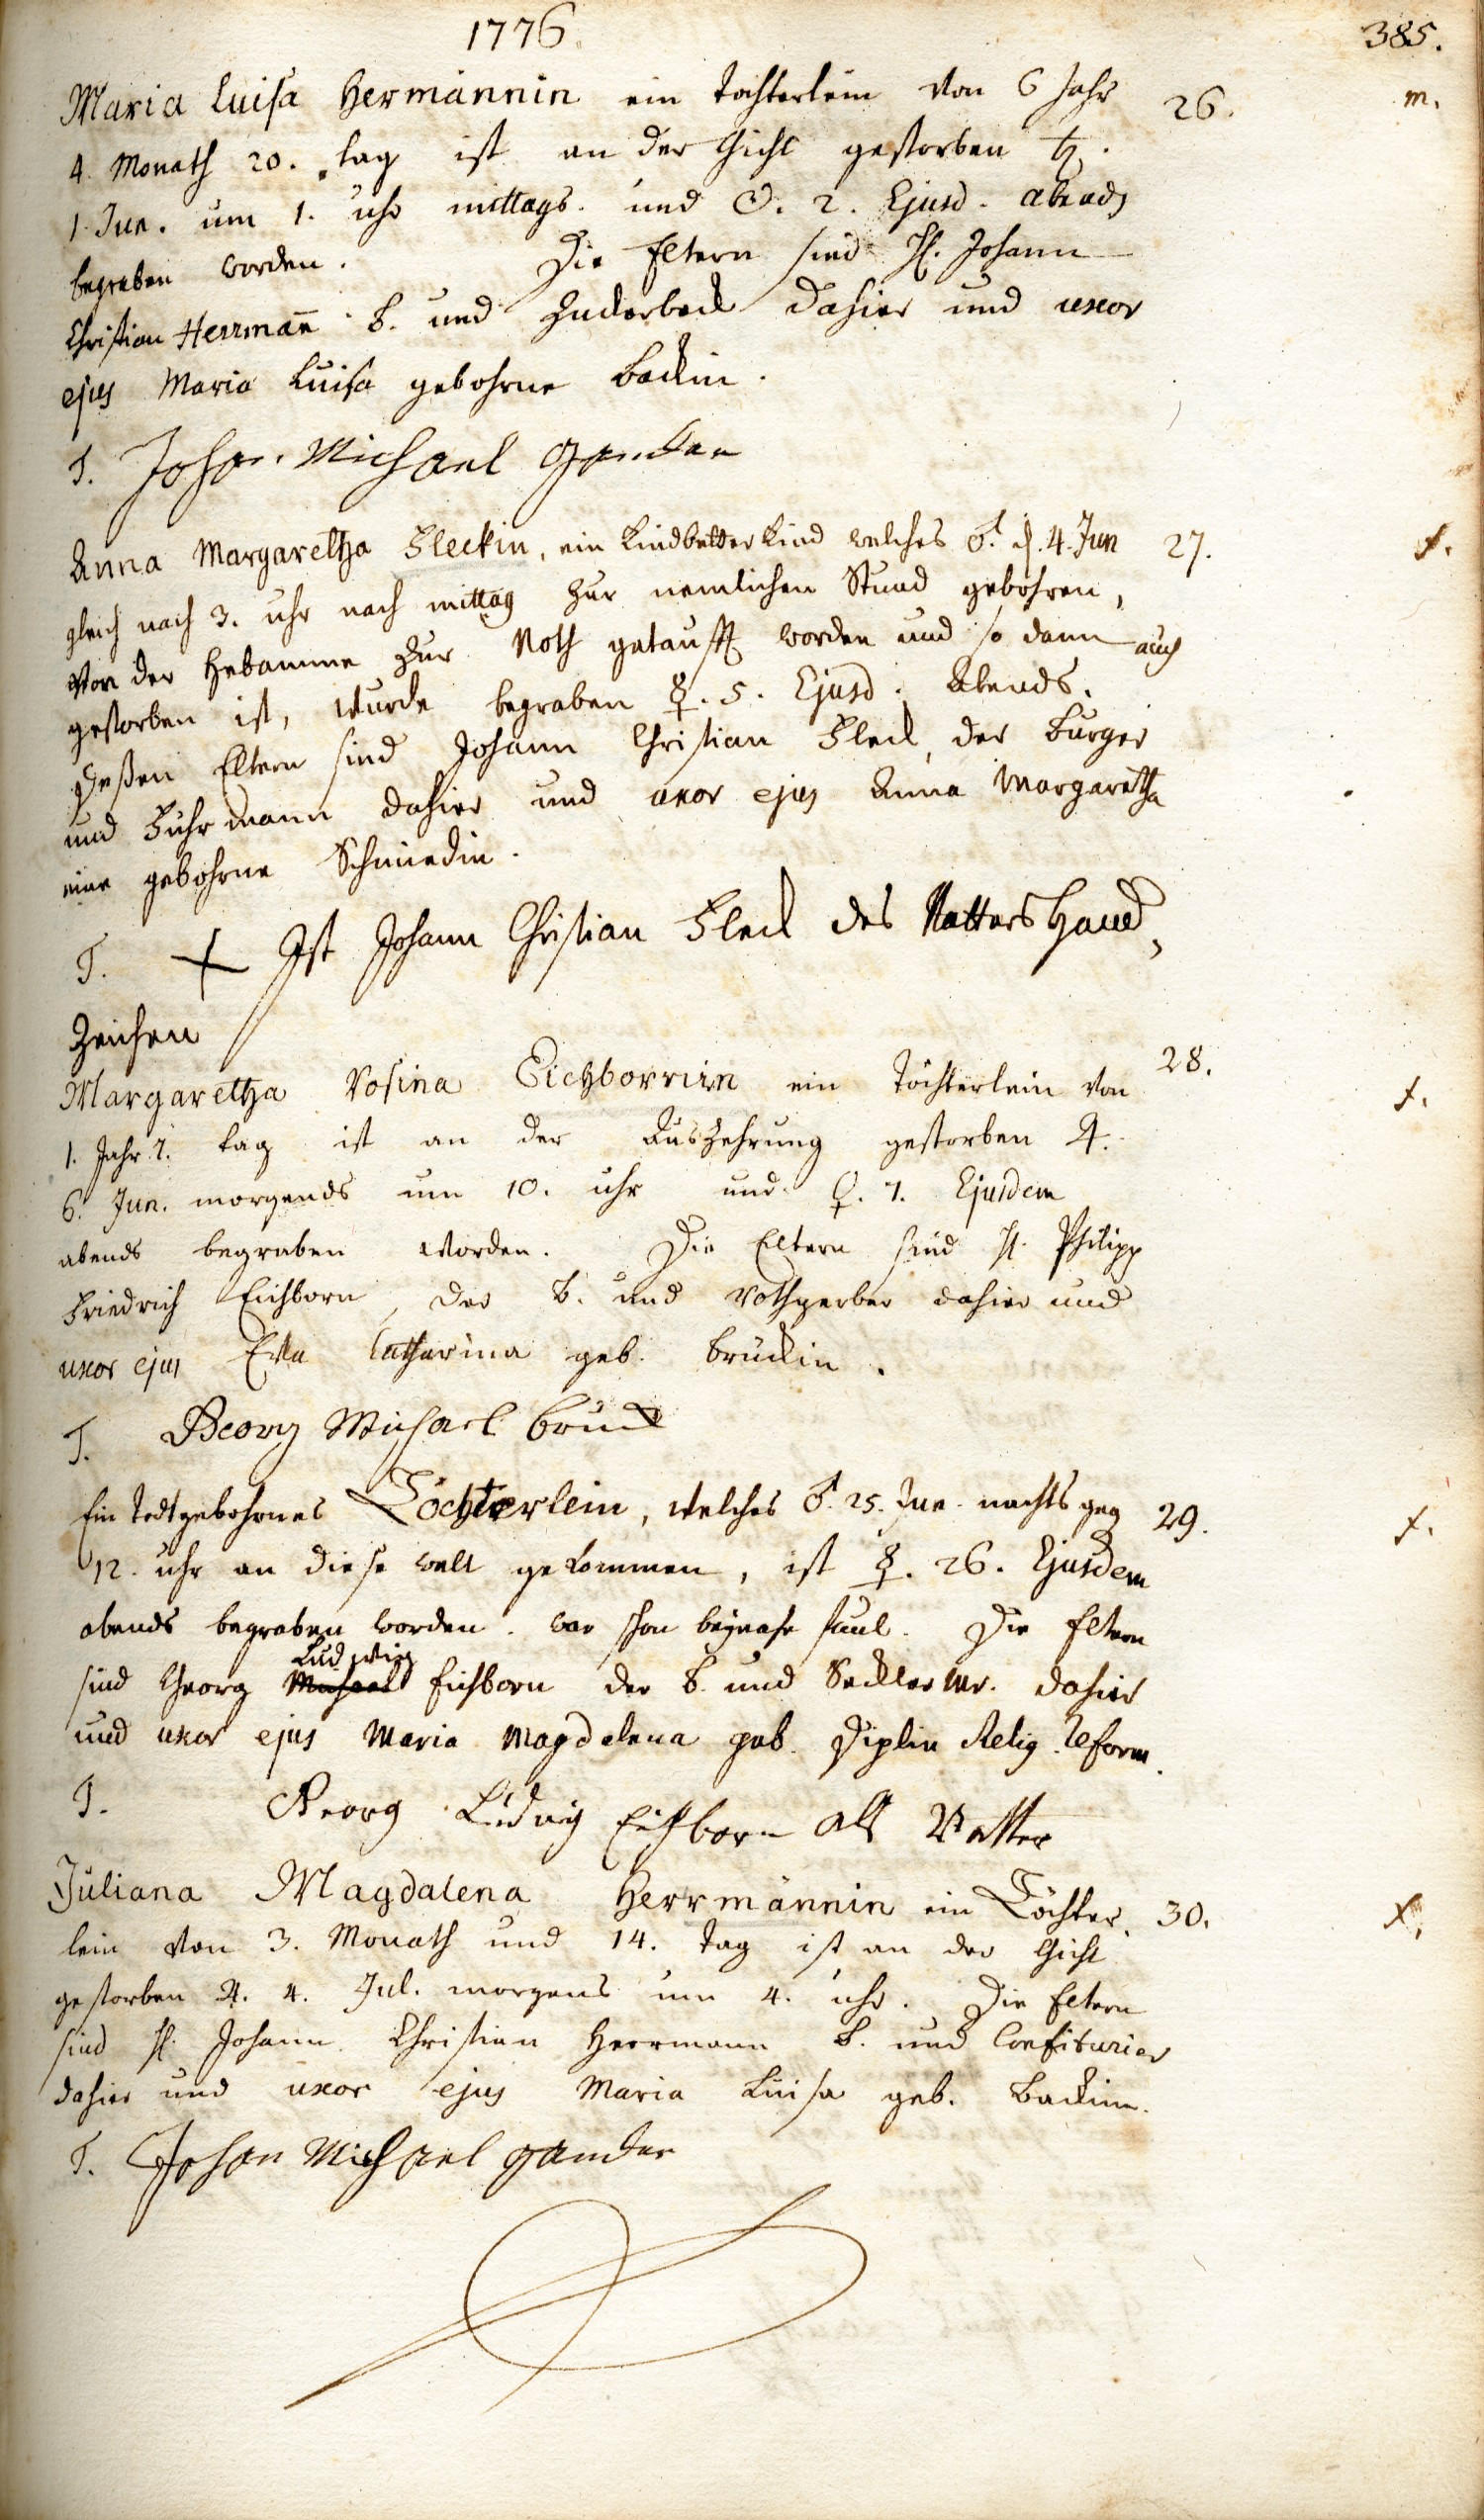 1776.
385.
Maria Luisa Hermännin ein Töchterlein von 6 Jahr 26. m.
4. Monath 20. tag ist an der Gicht gestorben ♄.
1. Jun. um 1. uhr mittags. und ☉. 2. Ejusd. abends
begraben worden. Die Eltern sind H. Johann
Christian Herrmañ B. und Zuckerbeck dahier und uxor
ejus Maria Luisa gebohrne Backin.
T. Johan Michael Gander
Anna Margaretha Fleckin, ein Kindbetter Kind welches ♂. d. 4. Jun 27. f.
gleich nach 3. uhr nach mittag zur nemlichen Stund gebohren,
von der Hebamme zur Noth getaufft worden und so dann auch
gestorben ist, wurde begraben ☿. 5. Ejusd. Abends.
Deßen Eltern sind Johann Christian Fleck, der Burger
und Fuhrmann dahier und uxor ejus Anna Margaretha
eine gebohrne Schmiedin.
T. + Ist Johann Christian Fleck des Vatters Hand,
Zeichen
Margaretha Rosina Eichbornin ein Töchterlein von 28. f.
1. Jahr 7. tag ist an der Auszehrung gestorben ♃.
6. Jun. morgends um 10. uhr und ♀. 7. Ejusdem
abends begraben worden. Die Eltern sind H. Philipp
Friedrich Eichborn, der B. und Rothgerber dahier und
uxor ejus Eva Catharina geb. Brückin.
T. Georg Michael Brück
Ein Todtgebohrnes Töchterlein, welches ♂. 25. Jun. nachts geg 29. f.
12. uhr an diese welt gekommen, ist ☿. 26. Ejusdem
abends begraben worden. war schon beynahe faul. Die Eltern
Ludwig
sind Georg Michael Eichborn der B. und Seckler Mr. dahier
und uxor ejus Maria Magdalena geb. Diplin Relig. Reform.
T. Georg Ludwig Eichborn als Vatter
Juliana Magdalena Herrmännin ein Töchter 30. f.
lein von 3. Monath und 14. tag ist an der Gicht
gestorben ♃. 4. Jul. morgens um 4. uhr. Die Eltern
sind H. Johann Christian Herrmann B. und Confiturier
dahier und uxor ejus Maria Luisa geb. Backin.
T. Johan Michael Gander